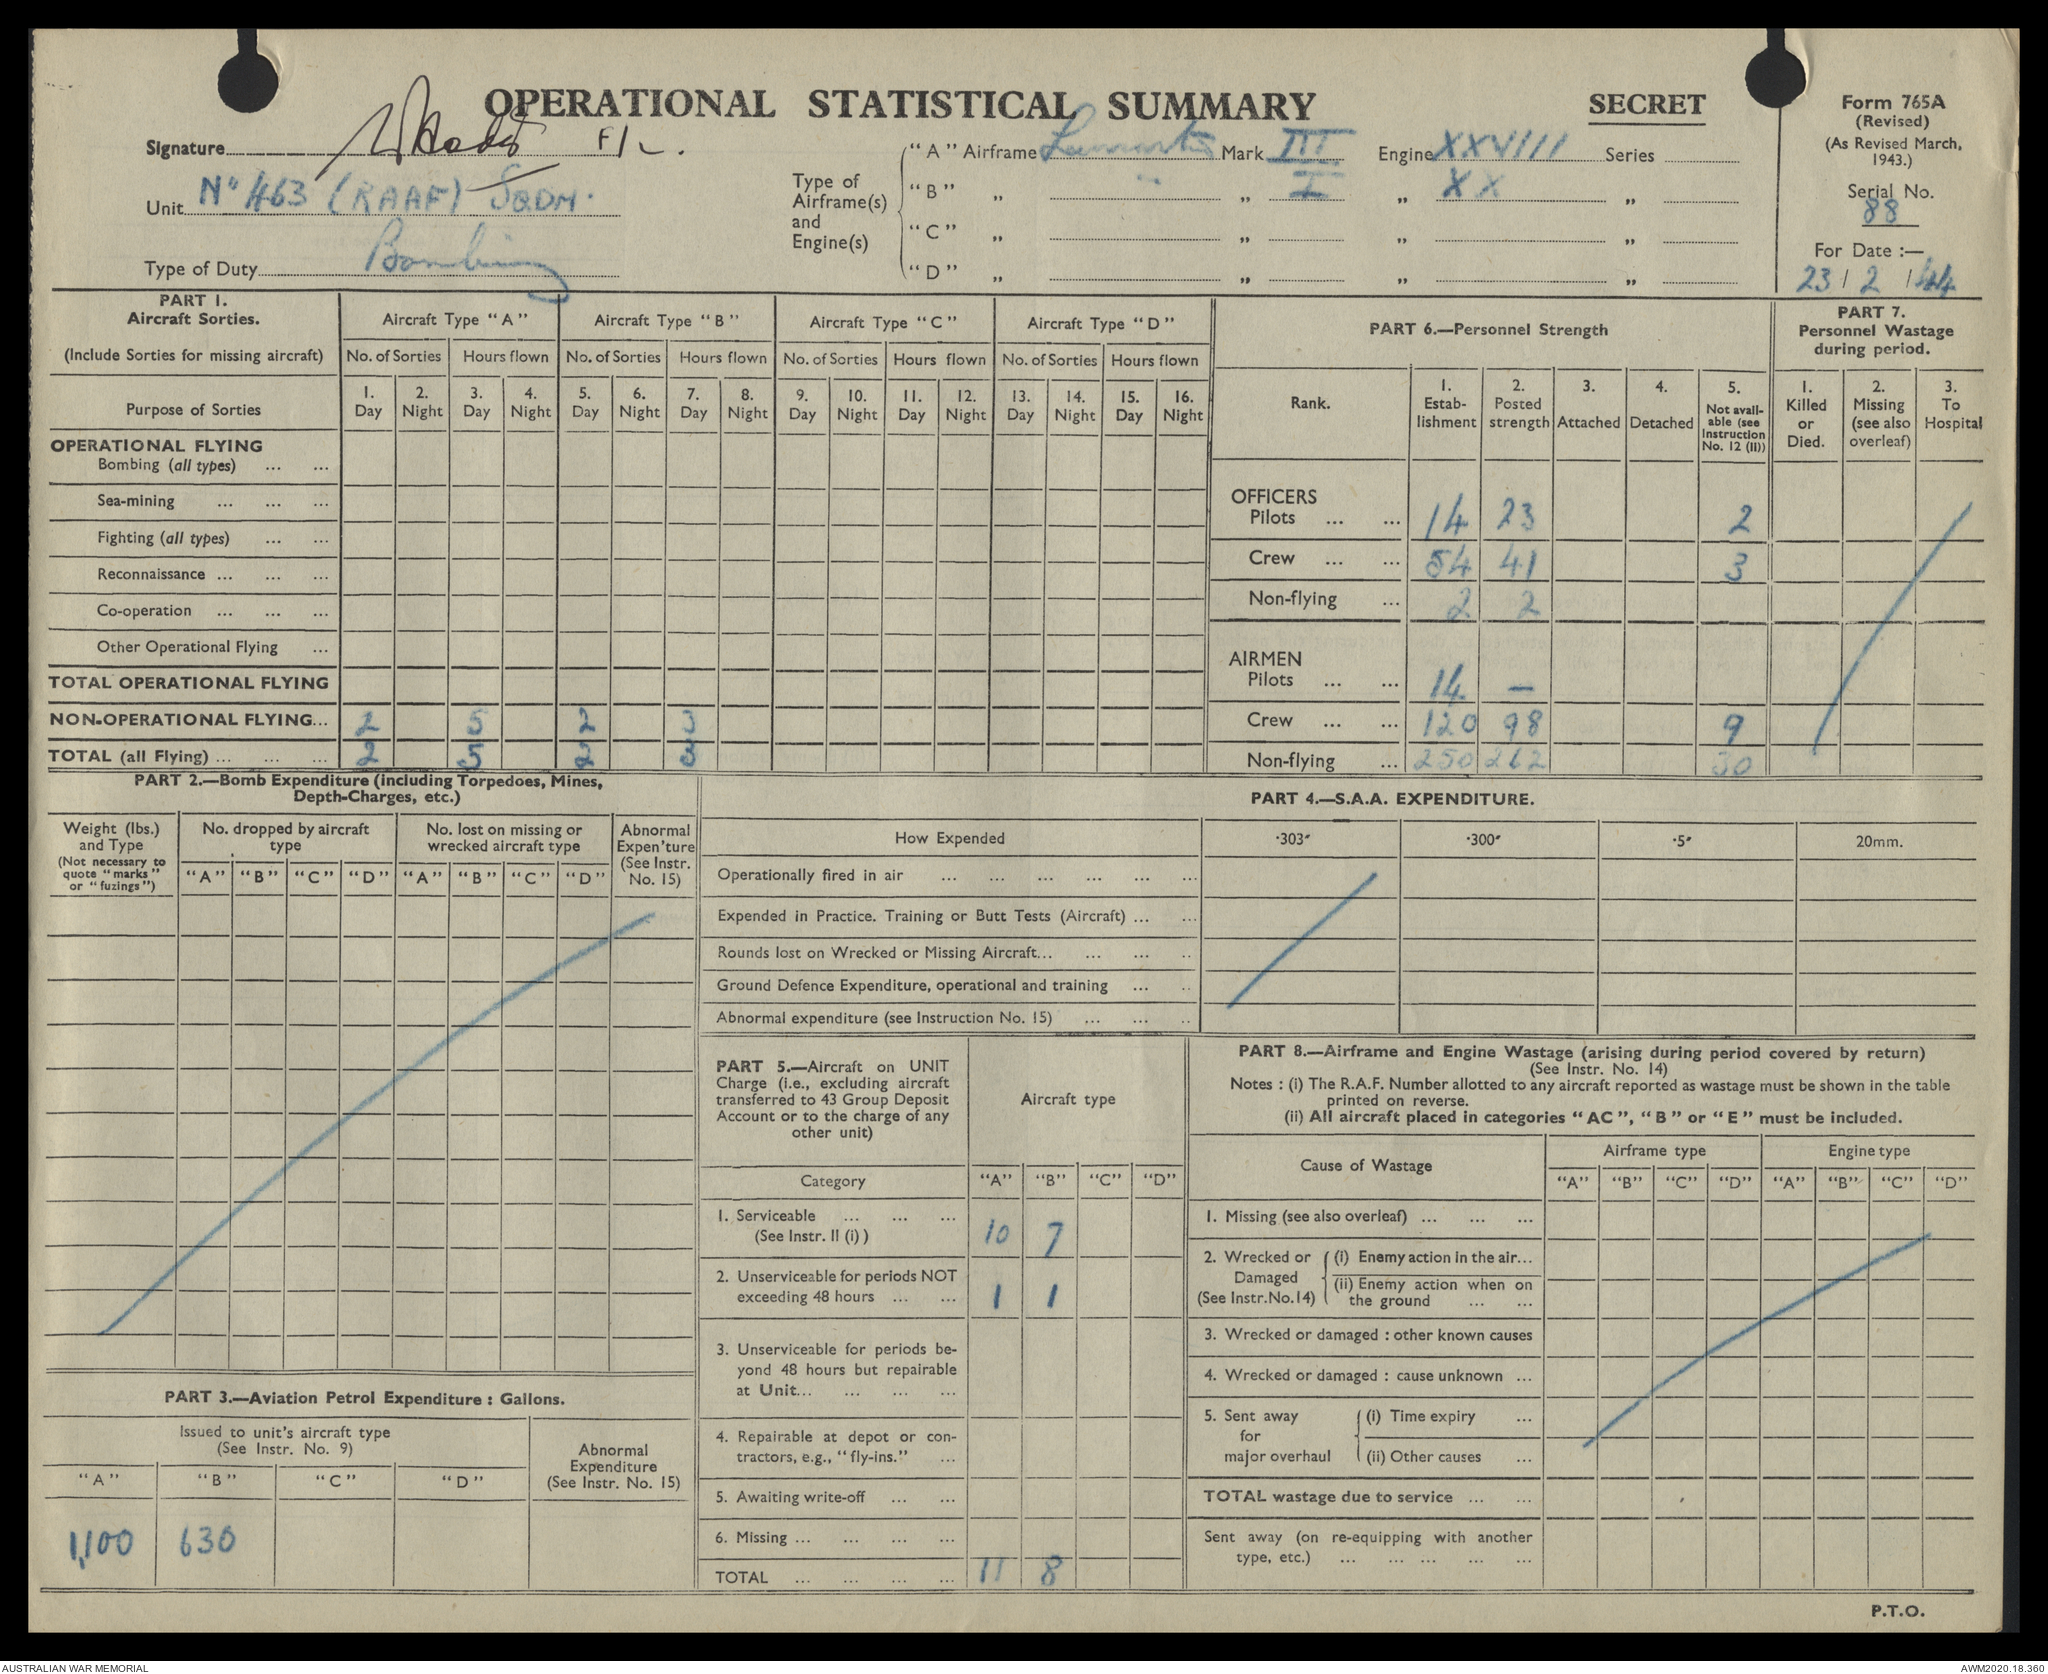 OPERATIONAL STATISTICAL SUMMARY
SECRET
Form 765A
(Revised)
(As Revised March,
1943.)
Serial No.
88
For Date :—
23 / 2 / 44
Signature F/L.
Unit No 463 (RAAF) SQDN.
Type of Duty Bombing
Type of
Airframe(s)
and
Engine(s)
"A" Airframe Lancaster Mark III Engine XXVIII Series
"B" „ " „ I „ XX „
"C" „ „ „ „
"D" „ „ „ „
PART 1.
Aircraft Sorties.
(Include Sorties for missing aircraft)
Purpose of Sorties
Aircraft Type "A" Aircraft Type "B" Aircraft Type "C" Aircraft Type "D"
No. of Sorties Hours flown No. of Sorties Hours flown No. of Sorties Hours flown No. of Sorties Hours flown
1. 2. 3. 4. 5. 6. 7. 8. 9. 10. 11. 12. 13. 14. 15. 16.
Day Night Day Night Day Night Day Night Day Night Day Night Day Night Day Night
OPERATIONAL FLYING
Bombing (all types) ... ...
Sea-mining ... ... ...
Fighting (all types) ... ...
Reconnaissance ... ... ...
Co-operation ... ... ...
Other Operational Flying ...
TOTAL OPERATIONAL FLYING
NON-OPERATIONAL FLYING... 2 5 2 3
TOTAL (all Flying) ... ... ... 2 5 2 3
PART 6.—Personnel Strength
Rank.
1.
Estab-
lishment
2.
Posted
strength
3.
Attached
4.
Detached
5.
Not avail-
able (see
Instruction
No. 12 (II))
OFFICERS
Pilots ... ... 14 23 2
Crew ... ... 54 41 3
Non-flying ... 2 2
AIRMEN
Pilots ... ... 14 —
Crew ... ... 120 98 9
Non-flying ... 250 262 30
PART 7.
Personnel Wastage
during period.
1.
Killed
or
Died.
2.
Missing
(see also
overleaf)
3.
To
Hospital
PART 2.—Bomb Expenditure (including Torpedoes, Mines,
Depth-Charges, etc.)
Weight (lbs.)
and Type
(Not necessary to
quote "marks"
or "fuzings")
No. dropped by aircraft
type
No. lost on missing or
wrecked aircraft type
Abnormal
Expen'ture
(See Instr.
No. 15)
"A" "B" "C" "D" "A" "B" "C" "D"
PART 4.—S.A.A. EXPENDITURE.
How Expended ·303" ·300" ·5" 20mm.
Operationally fired in air ... ... ... ... ... ...
Expended in Practice. Training or Butt Tests (Aircraft) ... ...
Rounds lost on Wrecked or Missing Aircraft... ... ... ..
Ground Defence Expenditure, operational and training ... ..
Abnormal expenditure (see Instruction No. 15) ... ... ..
PART 3.—Aviation Petrol Expenditure : Gallons.
Issued to unit's aircraft type
(See Instr. No. 9)
Abnormal
Expenditure
(See Instr. No. 15)
"A" "B" "C" "D"
1,100 630
PART 5.—Aircraft on UNIT
Charge (i.e., excluding aircraft
transferred to 43 Group Deposit
Account or to the charge of any
other unit)
Aircraft type
Category "A" "B" "C" "D"
1. Serviceable ... ... ...
(See Instr. II (i) ) 10 7
2. Unserviceable for periods NOT
exceeding 48 hours ... ... 1 1
3. Unserviceable for periods be-
yond 48 hours but repairable
at Unit... ... ... ...
4. Repairable at depot or con-
tractors, e.g., "fly-ins." ...
5. Awaiting write-off ... ...
6. Missing ... ... ... ...
TOTAL ... ... ... ... 11 8
PART 8.—Airframe and Engine Wastage (arising during period covered by return)
(See Instr. No. 14)
Notes : (i) The R.A.F. Number allotted to any aircraft reported as wastage must be shown in the table
printed on reverse.
(ii) All aircraft placed in categories "AC", "B" or "E" must be included.
Cause of Wastage
Airframe type Engine type
"A" "B" "C" "D" "A" "B" "C" "D"
1. Missing (see also overleaf) ... ... ...
2. Wrecked or
Damaged
(See Instr.No.14)
(i) Enemy action in the air...
(ii) Enemy action when on
the ground ... ...
3. Wrecked or damaged : other known causes
4. Wrecked or damaged : cause unknown ...
5. Sent away
for
major overhaul
(i) Time expiry ...
(ii) Other causes ...
TOTAL wastage due to service ... ...
Sent away (on re-equipping with another
type, etc.) ... ... ... ... ...
P.T.O.
AUSTRALIAN WAR MEMORIAL
AWM2020.18.360